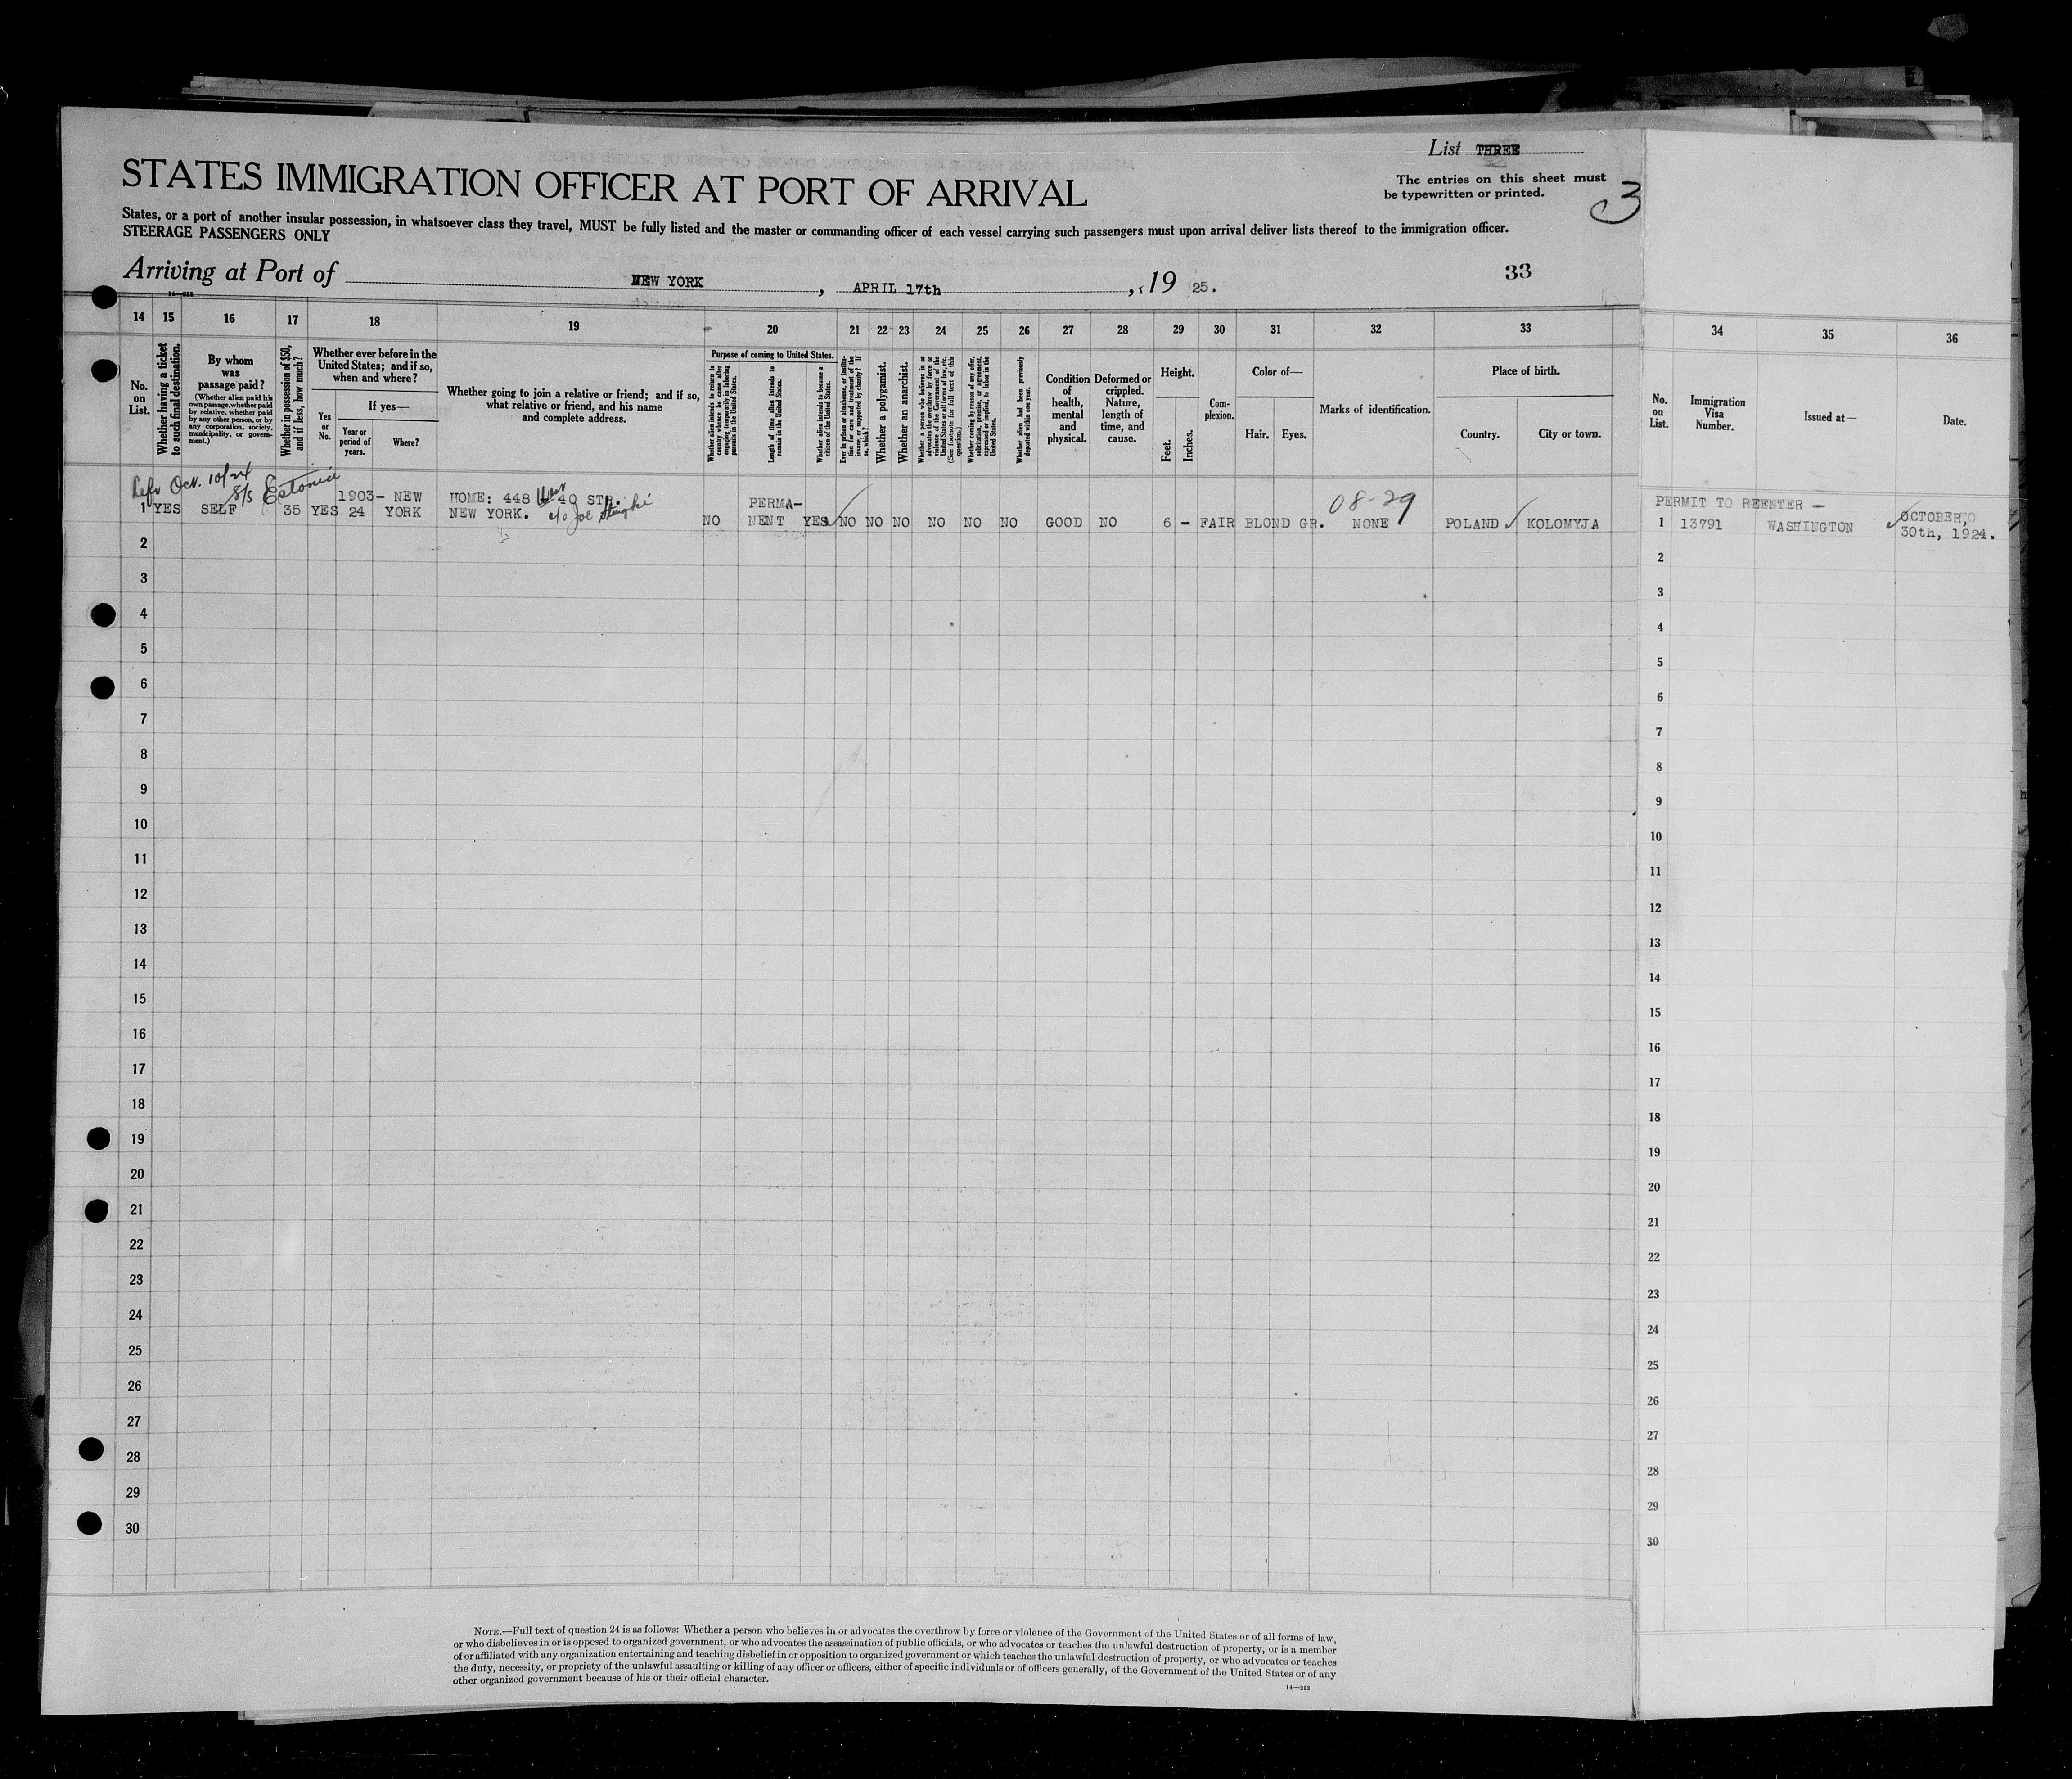 List THREE
STATES IMMIGRATION OFFICER AT PORT OF ARRIVAL
The entries on this sheet must
be typewritten or printed.
3
States, or a port of another insular possession, in whatsoever class they travel, MUST be fully listed and the master or commanding officer of each vessel carrying such passengers must upon arrival deliver lists thereof to the immigration officer.
STEERAGE PASSENGERS ONLY
Arriving at Port of NEW YORK, APRIL 17th, 19 25.
33
14—213
14 15 16 17 18 19 20 21 22 23 24 25 26 27 28 29 30 31 32 33 34 35 36
No. on List.
Whether having a ticket to such final destination.
By whom was passage paid?
(Whether alien paid his own passage, whether paid by relative, whether paid by any other person, or by any corporation, society, municipality, or government.)
Whether in possession of $50, and if less, how much?
Whether ever before in the United States; and if so, when and where?
Yes or No.
If yes—
Year or period of years.
Where?
Whether going to join a relative or friend; and if so, what relative or friend, and his name and complete address.
Purpose of coming to United States.
Whether alien intends to return to country whence he came after engaging temporarily in laboring pursuits in the United States.
Length of time alien intends to remain in the United States.
Whether alien intends to become a citizen of the United States.
Ever in prison or almshouse, or institution for care and treatment of the insane, or supported by charity? If so, which?
Whether a polygamist.
Whether an anarchist.
Whether a person who believes in or advocates the overthrow by force or violence of the Government of the United States or all forms of law, etc. (See footnote for full text of this question.)
Whether coming by reason of any offer, solicitation, promise, or agreement, expressed or implied, to labor in the United States.
Whether alien had been previously deported within one year.
Condition of health, mental and physical.
Deformed or crippled. Nature, length of time, and cause.
Height.
Feet.
Inches.
Complexion.
Color of—
Hair.
Eyes.
Marks of identification.
Place of birth.
Country.
City or town.
No. on List.
Immigration Visa Number.
Issued at—
Date.
Left Oct. 10/24
S/S Estonia
08-29
1 YES SELF 35 YES 1903- 24 NEW YORK HOME: 448 40 STR. NEW YORK. c/o Joe NO PERMA- NENT YES NO NO NO NO NO NO GOOD NO 6 - FAIR BLOND GR. NONE POLAND KOLOMYJA
PERMIT TO REENTER —
1 13791 WASHINGTON OCTOBER, 30th, 1924.
2 2
3 3
4 4
5 5
6 6
7 7
8 8
9 9
10 10
11 11
12 12
13 13
14 14
15 15
16 16
17 17
18 18
19 19
20 20
21 21
22 22
23 23
24 24
25 25
26 26
27 27
28 28
29 29
30 30
NOTE.—Full text of question 24 is as follows: Whether a person who believes in or advocates the overthrow by force or violence of the Government of the United States or of all forms of law,
or who disbelieves in or is opposed to organized government, or who advocates the assassination of public officials, or who advocates or teaches the unlawful destruction of property, or is a member
of or affiliated with any organization entertaining and teaching disbelief in or opposition to organized government or which teaches the unlawful destruction of property, or who advocates or teaches
the duty, necessity, or propriety of the unlawful assaulting or killing of any officer or officers, either of specific individuals or of officers generally, of the Government of the United States or of any
other organized government because of his or their official character.
14—213